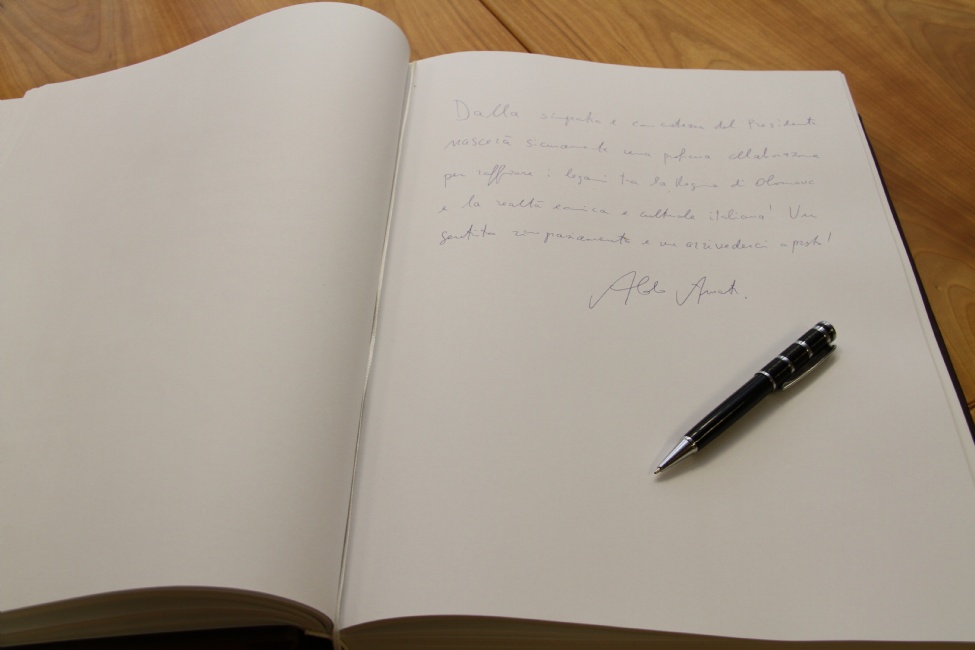 Dalla simpatia e concretezza del Presidente
nascerà sicuramente una proficua collaborazione
per rafforzare i legami tra la Regione di Olomouc
e la realtà economica e culturale italiana! Un
sentito ringraziamento e un arrivederci a presto!
Aldo Amati.